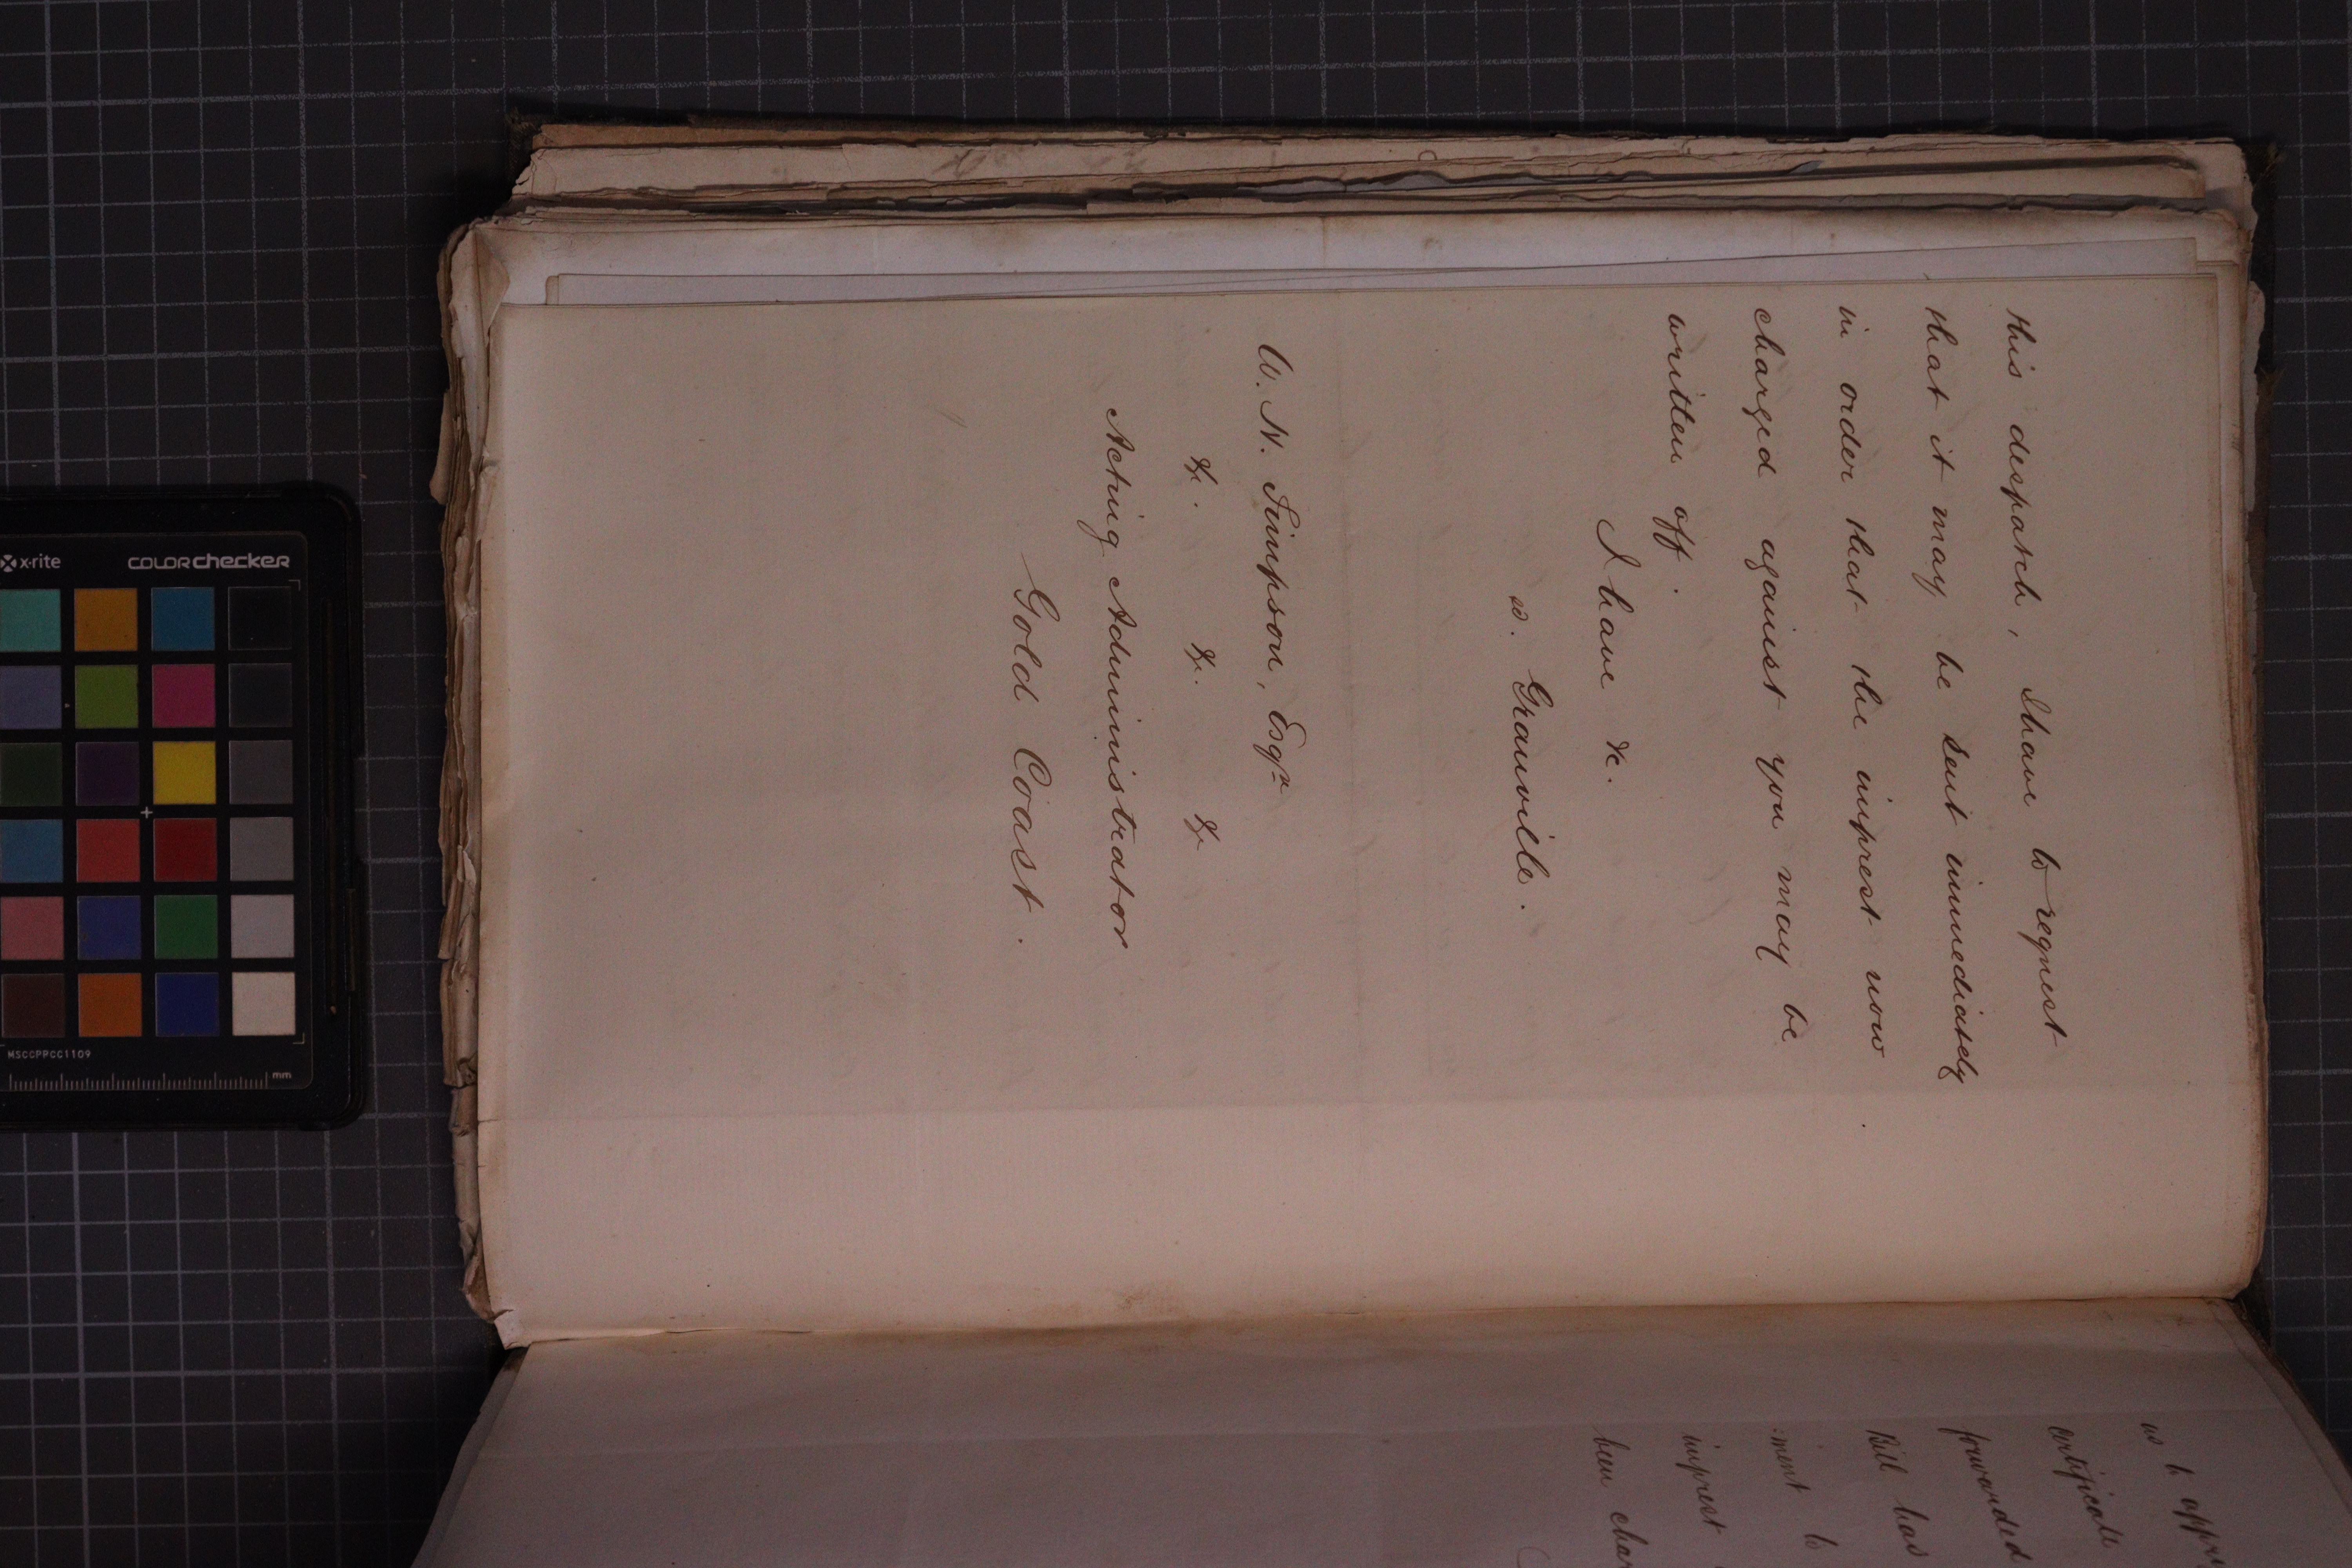 this despatch, I have to request
that it may be sent immediately
in order that the imprest now
charged against you may be
written off.
I have &c.
sd. Granville.
W. H. Simpson, Esqre
&c. &c. &c
Acting Administrator
Gold Coast.
us to
certificate
forwarded
Bill has
:ment to
imprest
been
x-rite
COLORchecker
MSCCPPCC1109
mm